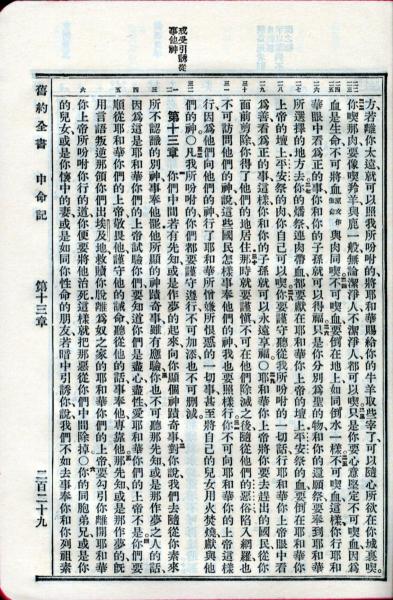 方若離你太遠就可以照我所吩咐的將耶和華賜給你的牛羊取些宰了可以隨心所欲在你城裏喫
你喫那肉要像喫羚羊與鹿一般無論潔淨人不潔淨人都可以喫只是你要心意堅定不可喫血因爲
血是生命不可將血原文作生命與肉同喫不可喫血要倒在地上如同倒水一樣不可喫血這樣你行耶和
華眼中看爲正的事你和你的子孫就可以得福只是你分別爲聖的物和你的還願祭要奉到耶和華
所選擇的地方去你的燔祭連肉帶血都要獻在耶和華你上帝的壇上平安祭的血要倒在耶和華你
上帝的壇上平安祭的肉你自己可以喫你要謹守聽從我所吩咐的一切話行耶和華你上帝眼中看
爲善看爲正的事這樣你和你的子孫就可以永遠享福○耶和華你上帝將你要去趕出的國民從你
面前剪除你得了他們的地居住那時就要謹慎不可在他們除滅之後隨從他們的惡俗陷入網羅也
不可訪問他們的神說這些國民怎樣事奉他們的神我也要照樣行你不可向耶和華你的上帝這樣
行因爲他們向他們的神行了耶和華所憎嫌所恨惡的一切事甚至將自己的兒女用火焚燒獻與他
們的神○凡我所吩咐的你們都要謹守遵行不可加添也不可刪減
或受引誘從事他神
第十三章 你們中間若有先知或是作夢的起來向你顯個神蹟奇事對你說我們去隨從你素來
所不認識的別神事奉他罷他所顯的神蹟奇事雖有應驗你也不可聽那先知或是那作夢之人的話
因爲這是耶和華你們的上帝試驗你們要知道你們是盡心盡性愛耶和華你們的上帝不是你們要
順從耶和華你們的上帝敬畏他謹守他的誡命聽從他的話事奉他專靠他那先知或是那作夢的既
用言語叛逆那領你們出埃及地救贖你脫離爲奴之家的耶和華你們的上帝要勾引你離開耶和華
你上帝所吩咐你行的道你便要將他治死這樣就把那惡從你們中間除掉○你的同胞弟兄或是你
的兒女或是你懷中的妻或是如同你性命的朋友若暗中引誘你說我們不如去事奉你和你列祖素
舊約全書 申命記 第十三章 二百二十九